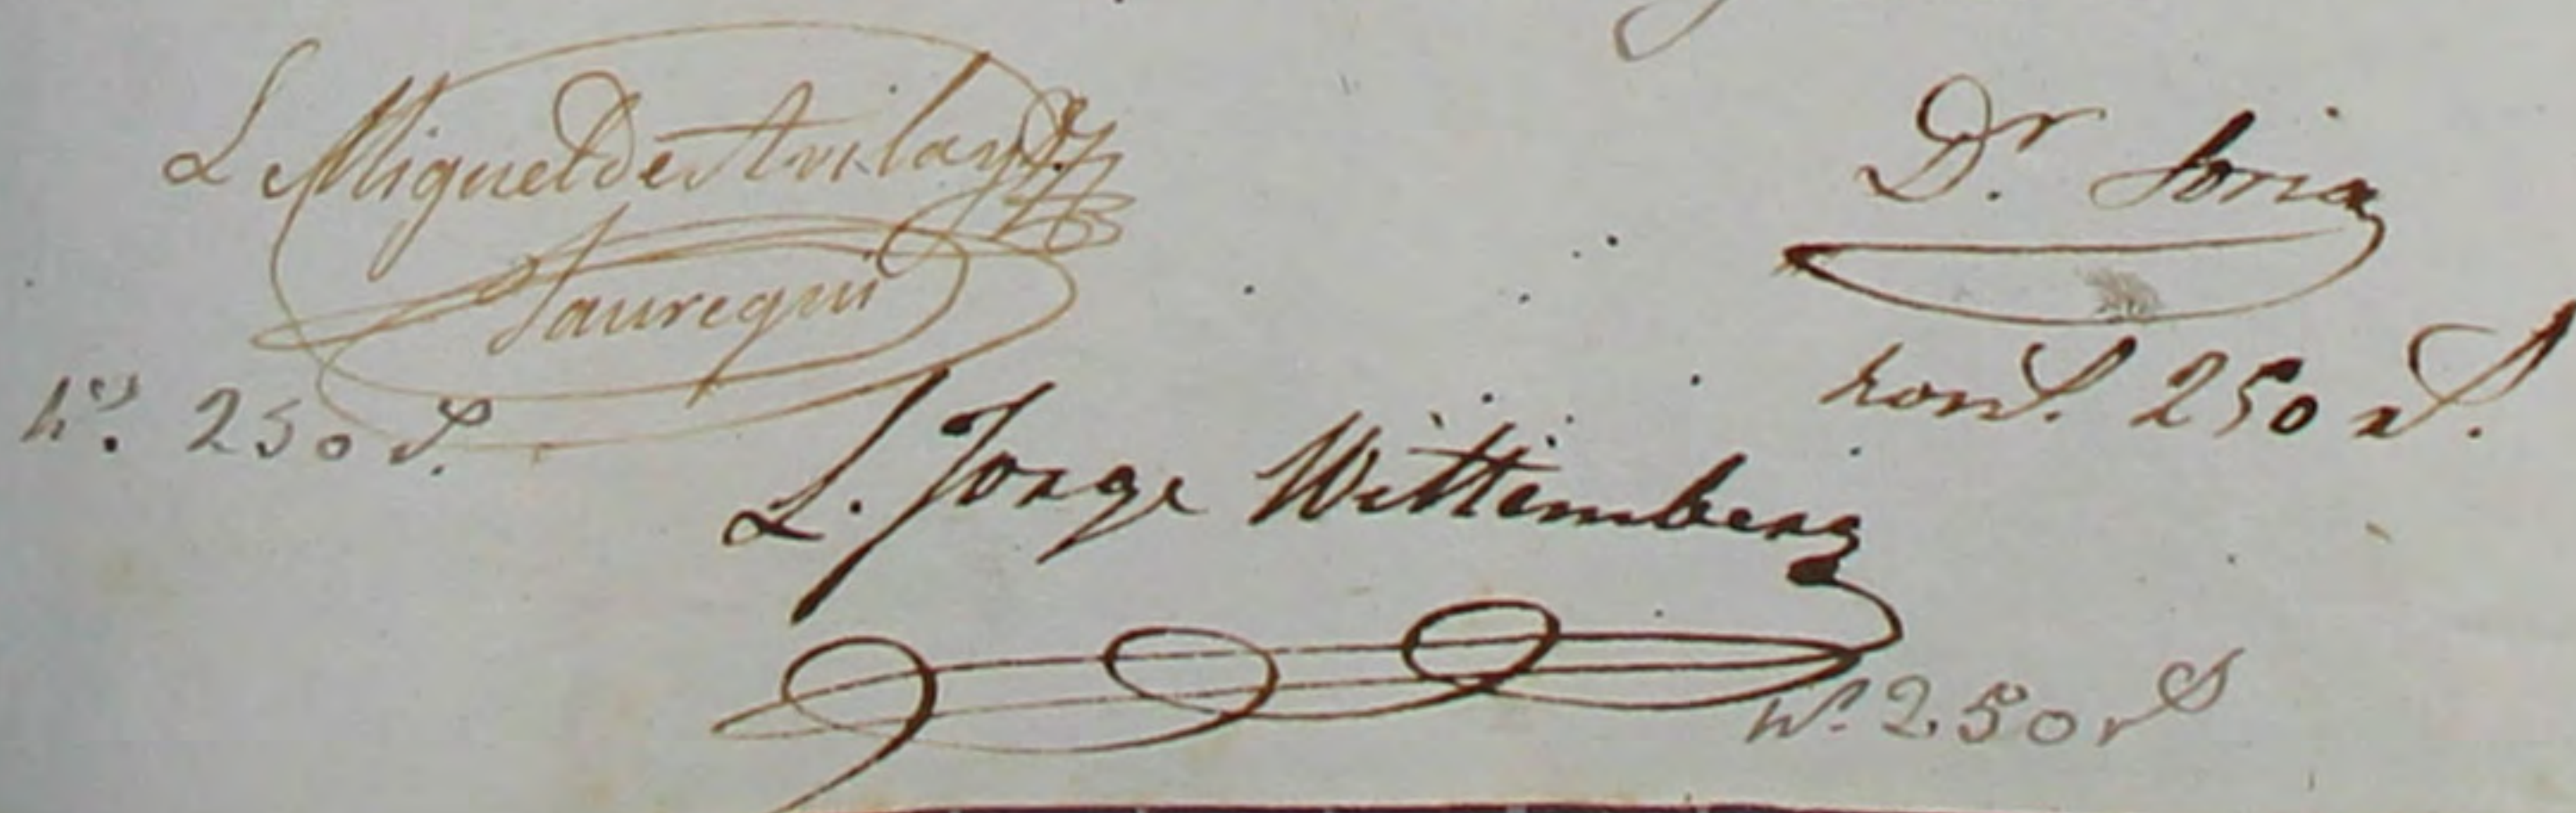 L Miguel de Avila y
Jauregui
hs. 250 rs.
Dr. Soria
hons. 250 rs.
L. Jorge Wittemberg
hs. 250 rs